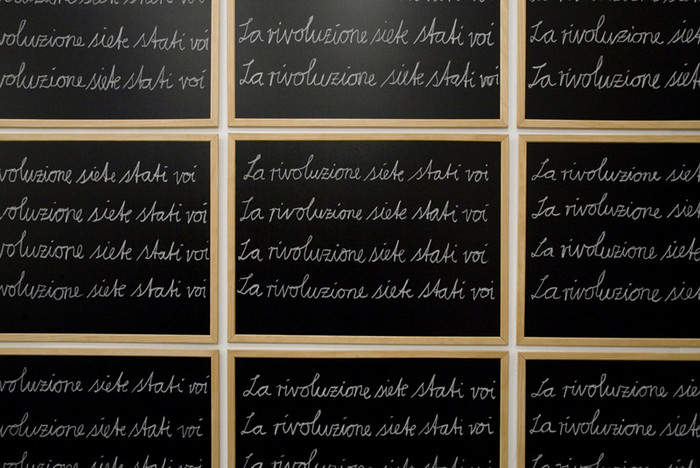 voluzione siete stati voi
voluzione siete stati voi
La rivoluzione siete stati voi
La rivoluzione siete stati voi
La rivoluzione siet
La rivoluzione siet
voluzione siete stati voi
voluzione siete stati voi
voluzione siete stati voi
voluzione siete stati voi
La rivoluzione siete stati voi
La rivoluzione siete stati voi
La rivoluzione siete stati voi
La rivoluzione siete stati voi
La rivoluzione siet
La rivoluzione siet
La rivoluzione siete
La rivoluzione siet
voluzione siete stati voi
voluzione siete stati voi
La rivoluzione siete stati voi
La rivoluzione siete stati voi
La rivoluzione siete stati voi
La rivoluzione sie
La rivoluzione siet